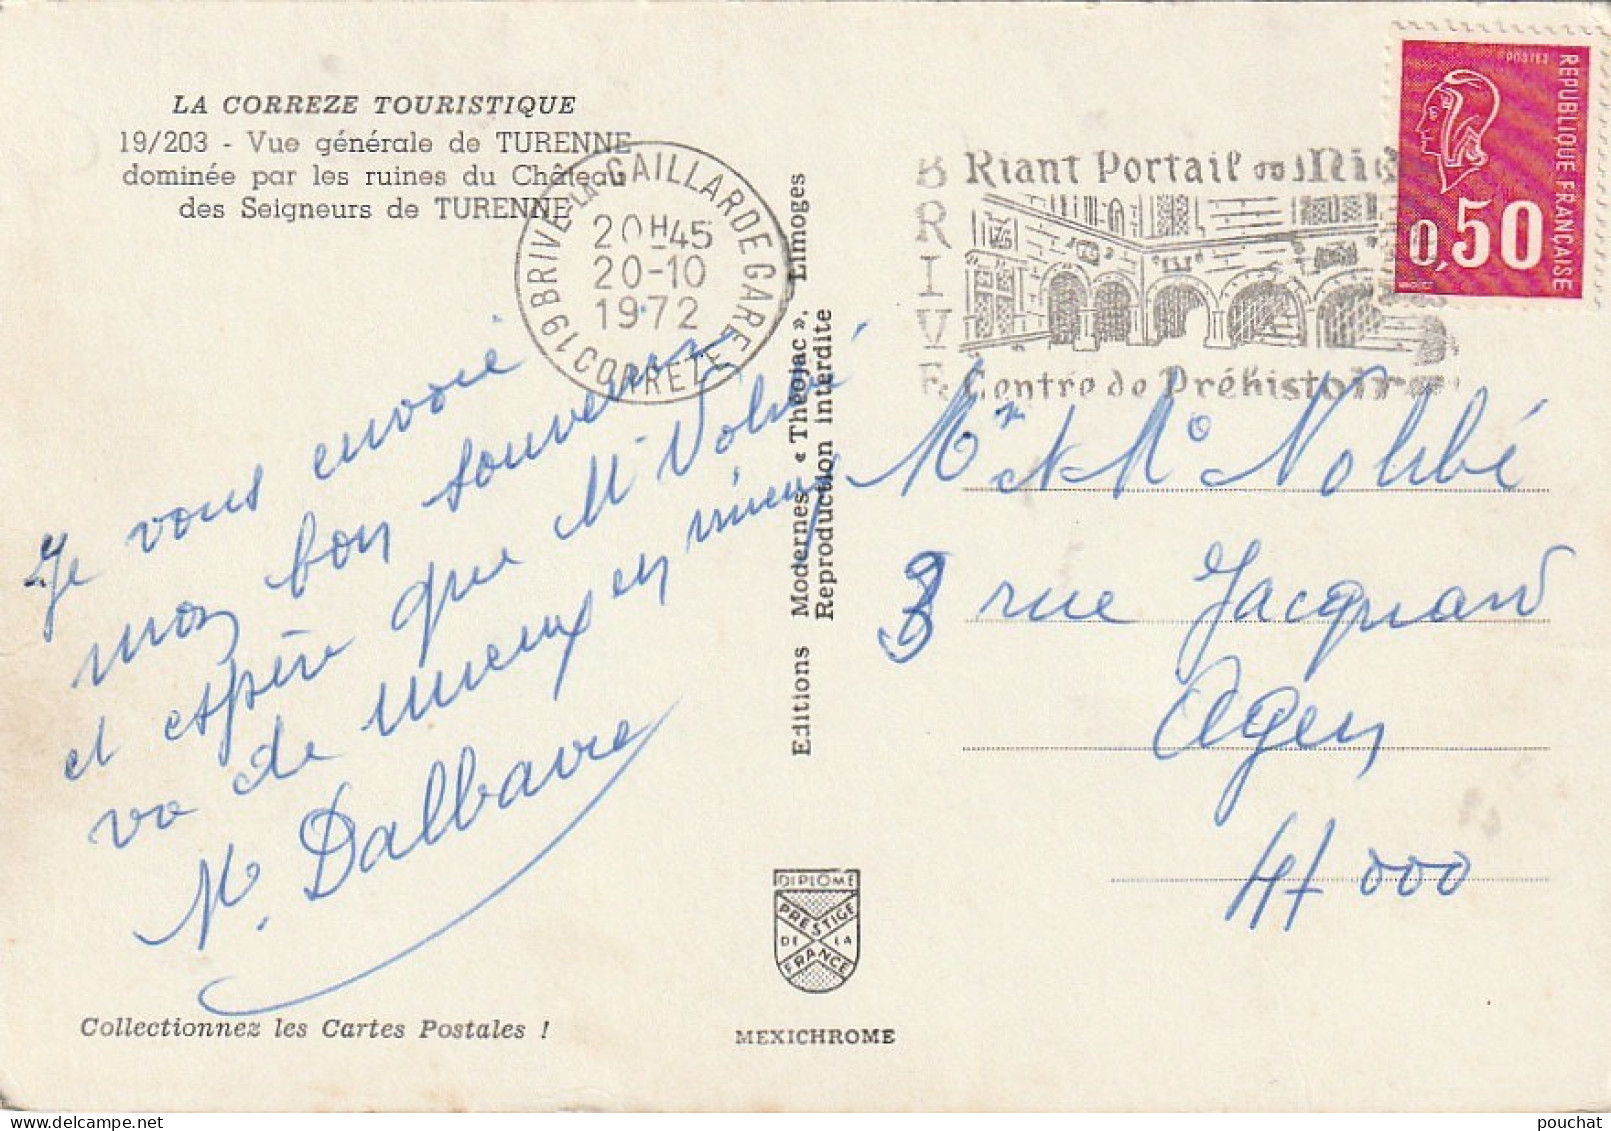 LA CORREZE TOURISTIQUE
19/203 - Vue générale de TURENNE
dominée par les ruines du Château
des Seigneurs de TURENNE
19 BRIVE-LA-GAILLARDE GARE
CORREZE
20H45
20-10
1972
BRIVE
Riant Portail du Midi
Centre de Préhistoire
POSTES
REPUBLIQUE FRANÇAISE
0,50
Je vous envoie
mon bon souvenir
et espère que Mr
va de mieux en mieux
M. Dalbavie
Editions Modernes « Théojac », Limoges
Reproduction interdite
Mr et Me
3 rue Jacquard
Agen
47 000
DIPLOME
PRESTIGE
DE LA
FRANCE
Collectionnez les Cartes Postales !
MEXICHROME
pouchat